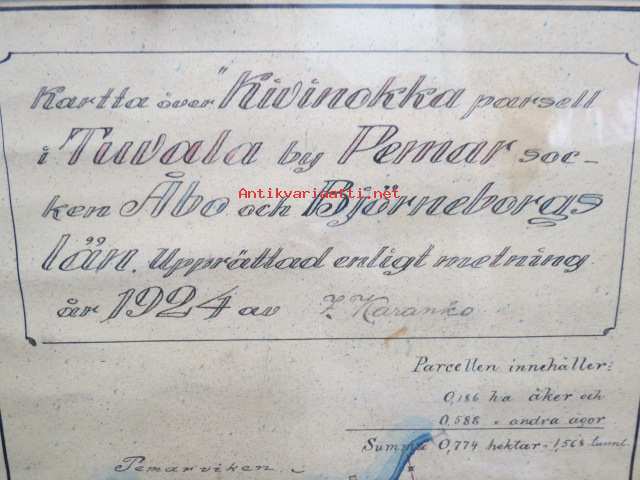 Kartta över "Kivinokka parsell
i Tuvala by Pemar soc-
ken Åbo och Björneborgs
län. Upprättad enligt metning
år 1924 av J. Karanko
Antikvariaatti.net
Parcellen innehåller:
0,186 ha åker och
0,588 " andra ägor
Summa 0,774 hektar = 1,568 tunnl.
Pemarviken.